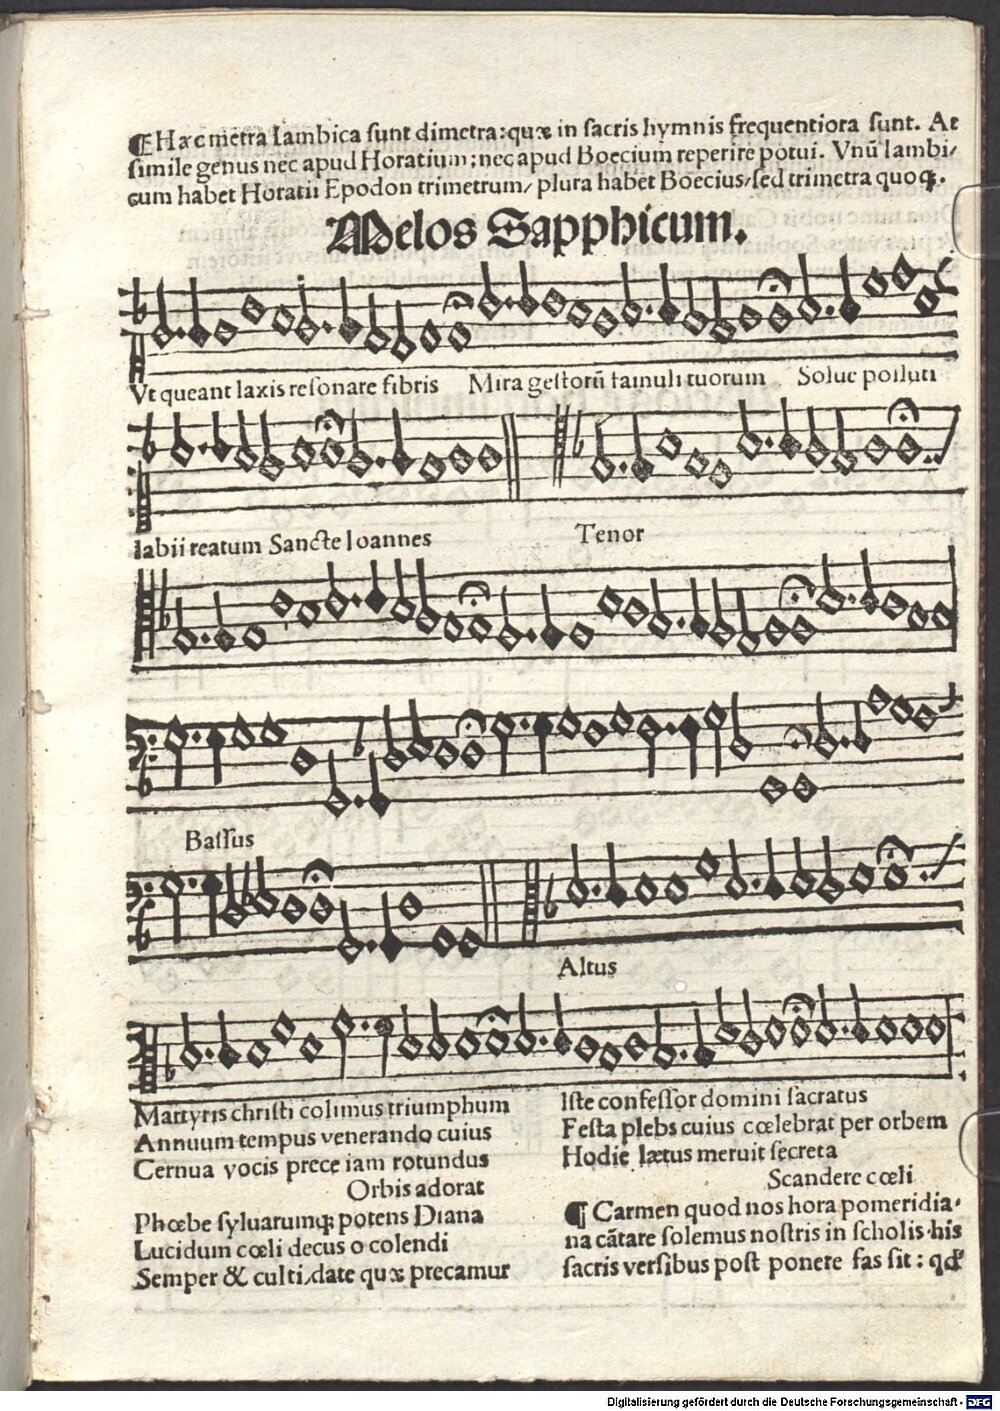 ¶ Hæc metra Iambica sunt dimetra: quæ in sacris hymnis frequentiora sunt. At
simile genus nec apud Horatium; nec apud Boecium reperire potui. Vnū Iambi/
cum habet Horatii Epodon trimetrum/ plura habet Boecius/ sed trimetra quoq;.
Melos Sapphicum.
Vt queant laxis resonare fibris Mira gestorū famuli tuorum Solue polluti
labii reatum Sancte Ioannes
Tenor
Bassus
Altus
Martyris christi colimus triumphum
Annuum tempus venerando cuius
Cernua vocis prece iam rotundus
Orbis adorat
Phœbe syluarumq; potens Diana
Lucidum cœli decus o colendi
Semper & culti, date quæ precamur
Iste confessor domini sacratus
Festa plebs cuius cœlebrat per orbem
Hodie lætus meruit secreta
Scandere cœli
¶ Carmen quod nos hora pomeridia-
na cātare solemus nostris in scholis his
sacris versibus post ponere fas sit: qđ
Digitalisierung gefördert durch die Deutsche Forschungsgemeinschaft - DFG